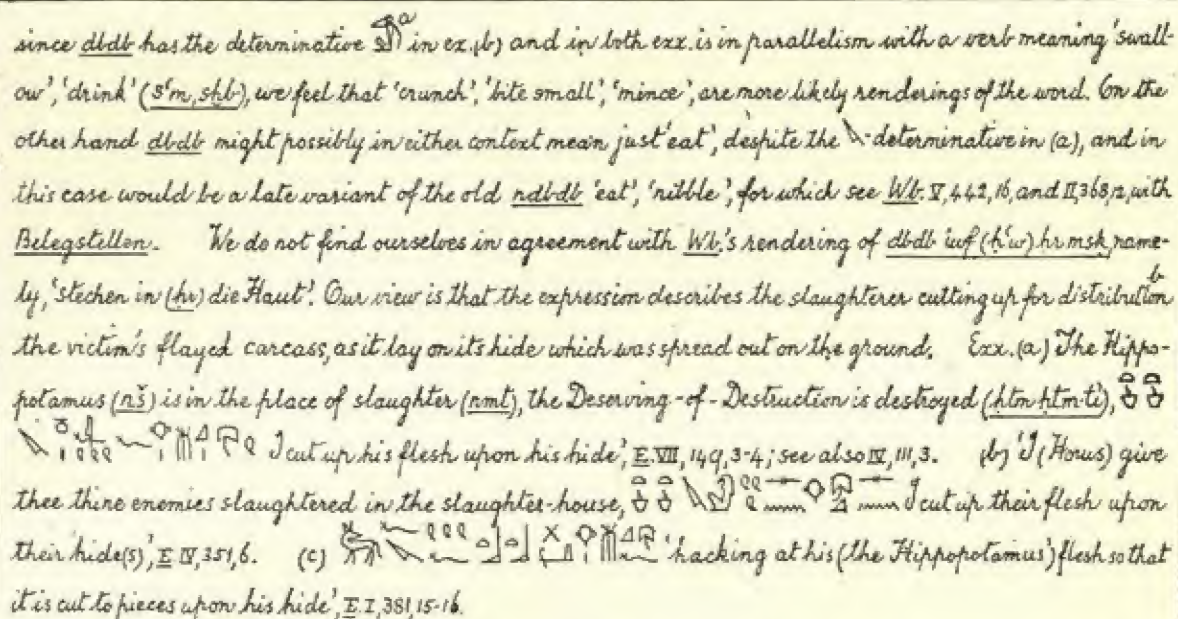 since dbdb has the determinative a in ex.(b) and in both exx. is in parallelism with a verb meaning 'swall-
ow', 'drink' (sꜥm, sḫb), we feel that 'crunch', 'bite small', 'mince', are more likely renderings of the word. On the
other hand dbdb might possibly in either context mean just 'eat', despite the -determinative in (a), and in
this case would be a late variant of the old ndbdb 'eat', 'nibble', for which see Wb. V, 442, 16, and II, 368, 12, with
Belegstellen. We do not find ourselves in agreement with Wb.'s rendering of dbdb iwf (ḥꜥw) ḥr msk, name-
ly, 'stechen in (ḥr) die Haut'. Our view is that the expression describes the slaughterer cutting up for distribution b
the victim's flayed carcass, as it lay on its hide which was spread out on the ground. Exx. (a) The Hippo-
potamus (nš) is in the place of slaughter (nmt), the Deserving-of-Destruction is destroyed (ḥtm ḥtm·ti),
I cut up his flesh upon his hide', E. VII, 149, 3-4; see also IV, 111, 3. (b) 'I (Horus) give
thee thine enemies slaughtered in the slaughter-house, I cut up their flesh upon
their hide(s)', E. IV, 351, 6. (c) 'hacking at his (the Hippopotamus') flesh so that
it is cut to pieces upon his hide', E. I, 381, 15-16.